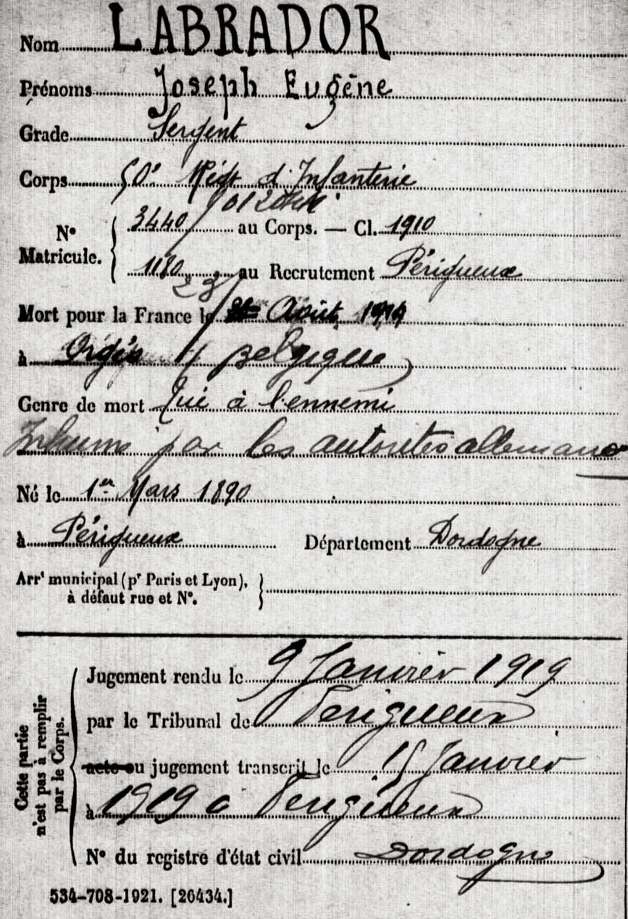 Nom LABRADOR
Prénoms Joseph Eugène
Grade Sergent
Corps 50e Régt d'Infanterie
N° Matricule. 3440 au Corps. — Cl. 1910
1180 au Recrutement Périgueux
23
Mort pour la France le Août 1914
à Belgique
Genre de mort Tué à l'ennemi
Inhumé par les autorités allemandes
Né le 1er Mars 1890
à Périgueux Département Dordogne
Arrt municipal (pr Paris et Lyon),
à défaut rue et N°.
Cette partie
n'est pas à remplir
par le Corps.
Jugement rendu le 9 Janvier 1919
par le Tribunal de Perigueux
acte ou jugement transcrit le 15 Janvier
à 1919 à Perigueux
N° du registre d'état civil Dordogne
534-708-1921. [26434.]